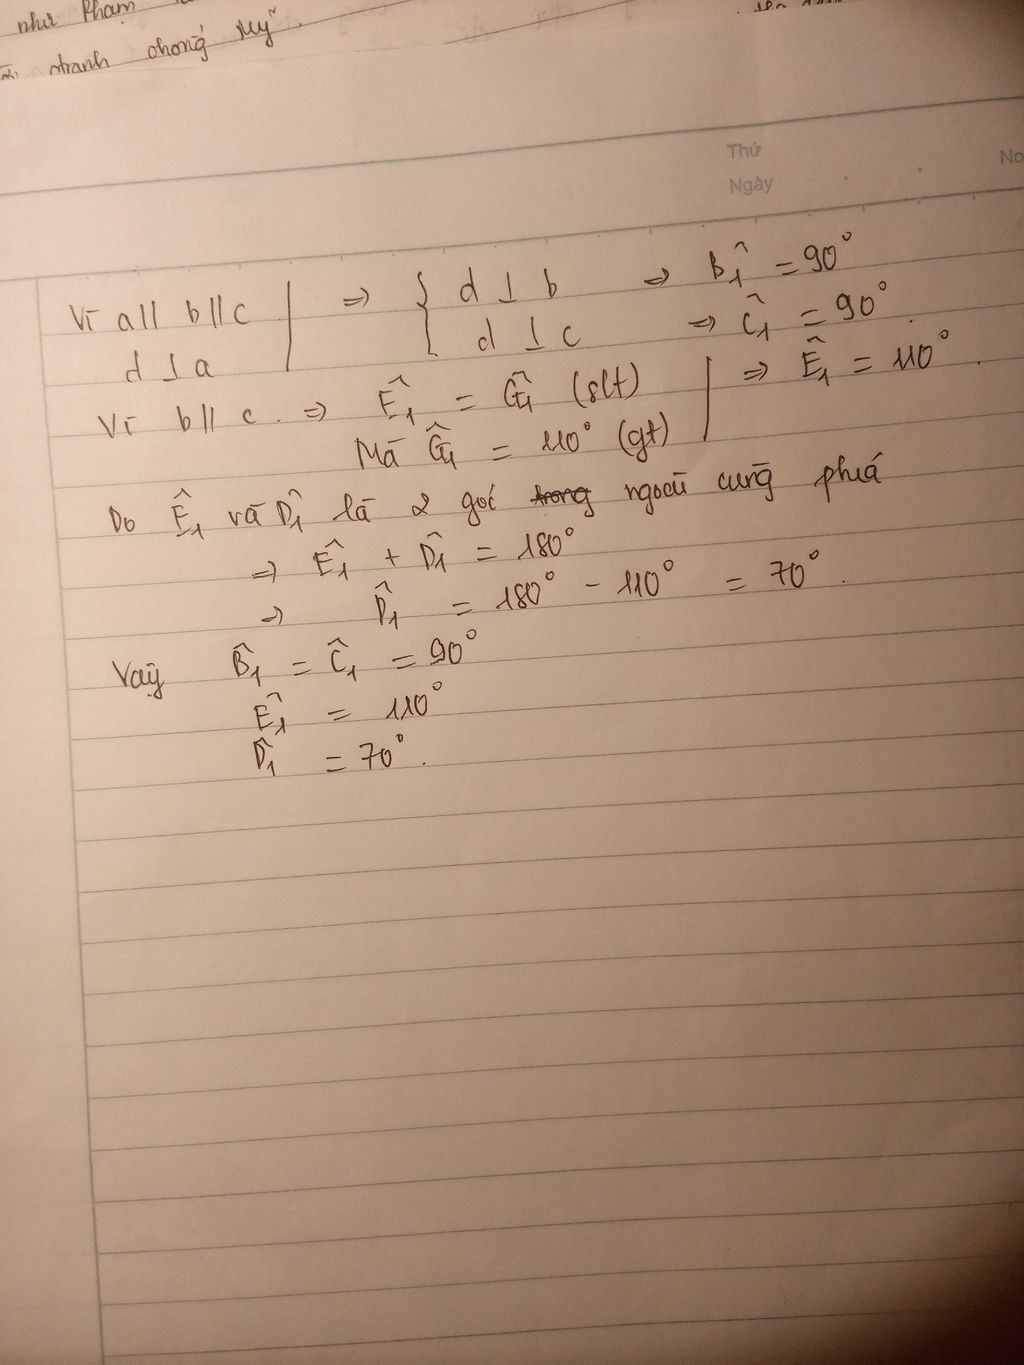 như Phạm
tranh chống Mỹ.
Thứ
Ngày
No
Vì a // b // c | => { d ⊥ b => B̂₁ = 90°
d ⊥ a | { d ⊥ c => Ĉ₁ = 90°.
Vì b // c => Ê₁ = Ĝ₁ (slt) | => Ê₁ = 110°.
Mà Ĝ₁ = 110° (gt) |
Do Ê₁ và D̂₁ là 2 góc trong ngoài cùng phía
=> Ê₁ + D̂₁ = 180°
=> D̂₁ = 180° - 110° = 70°.
Vậy B̂₁ = Ĉ₁ = 90°
Ê₁ = 110°
D̂₁ = 70°.